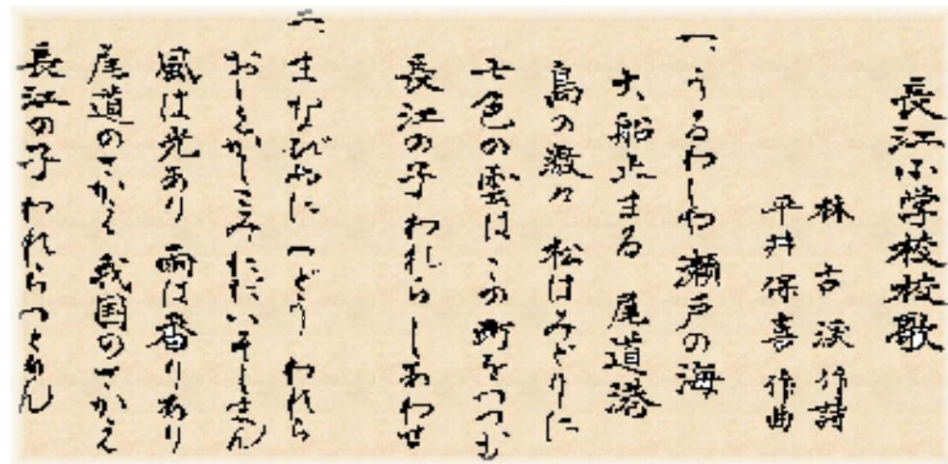 長江小学校校歌
林 古渓 作詩
平井保喜 作曲
一、うるわしや 瀬戸の海
大船止まる 尾道港
島の数々 松はみどりに
七色の雲は この町をつつむ
長江の子 われら しあわせ
二、まなびやに つどう われら
風は光あり 雨は香りあり
尾道のさかえ 我国のさかえ
長江の子 われらつとめん